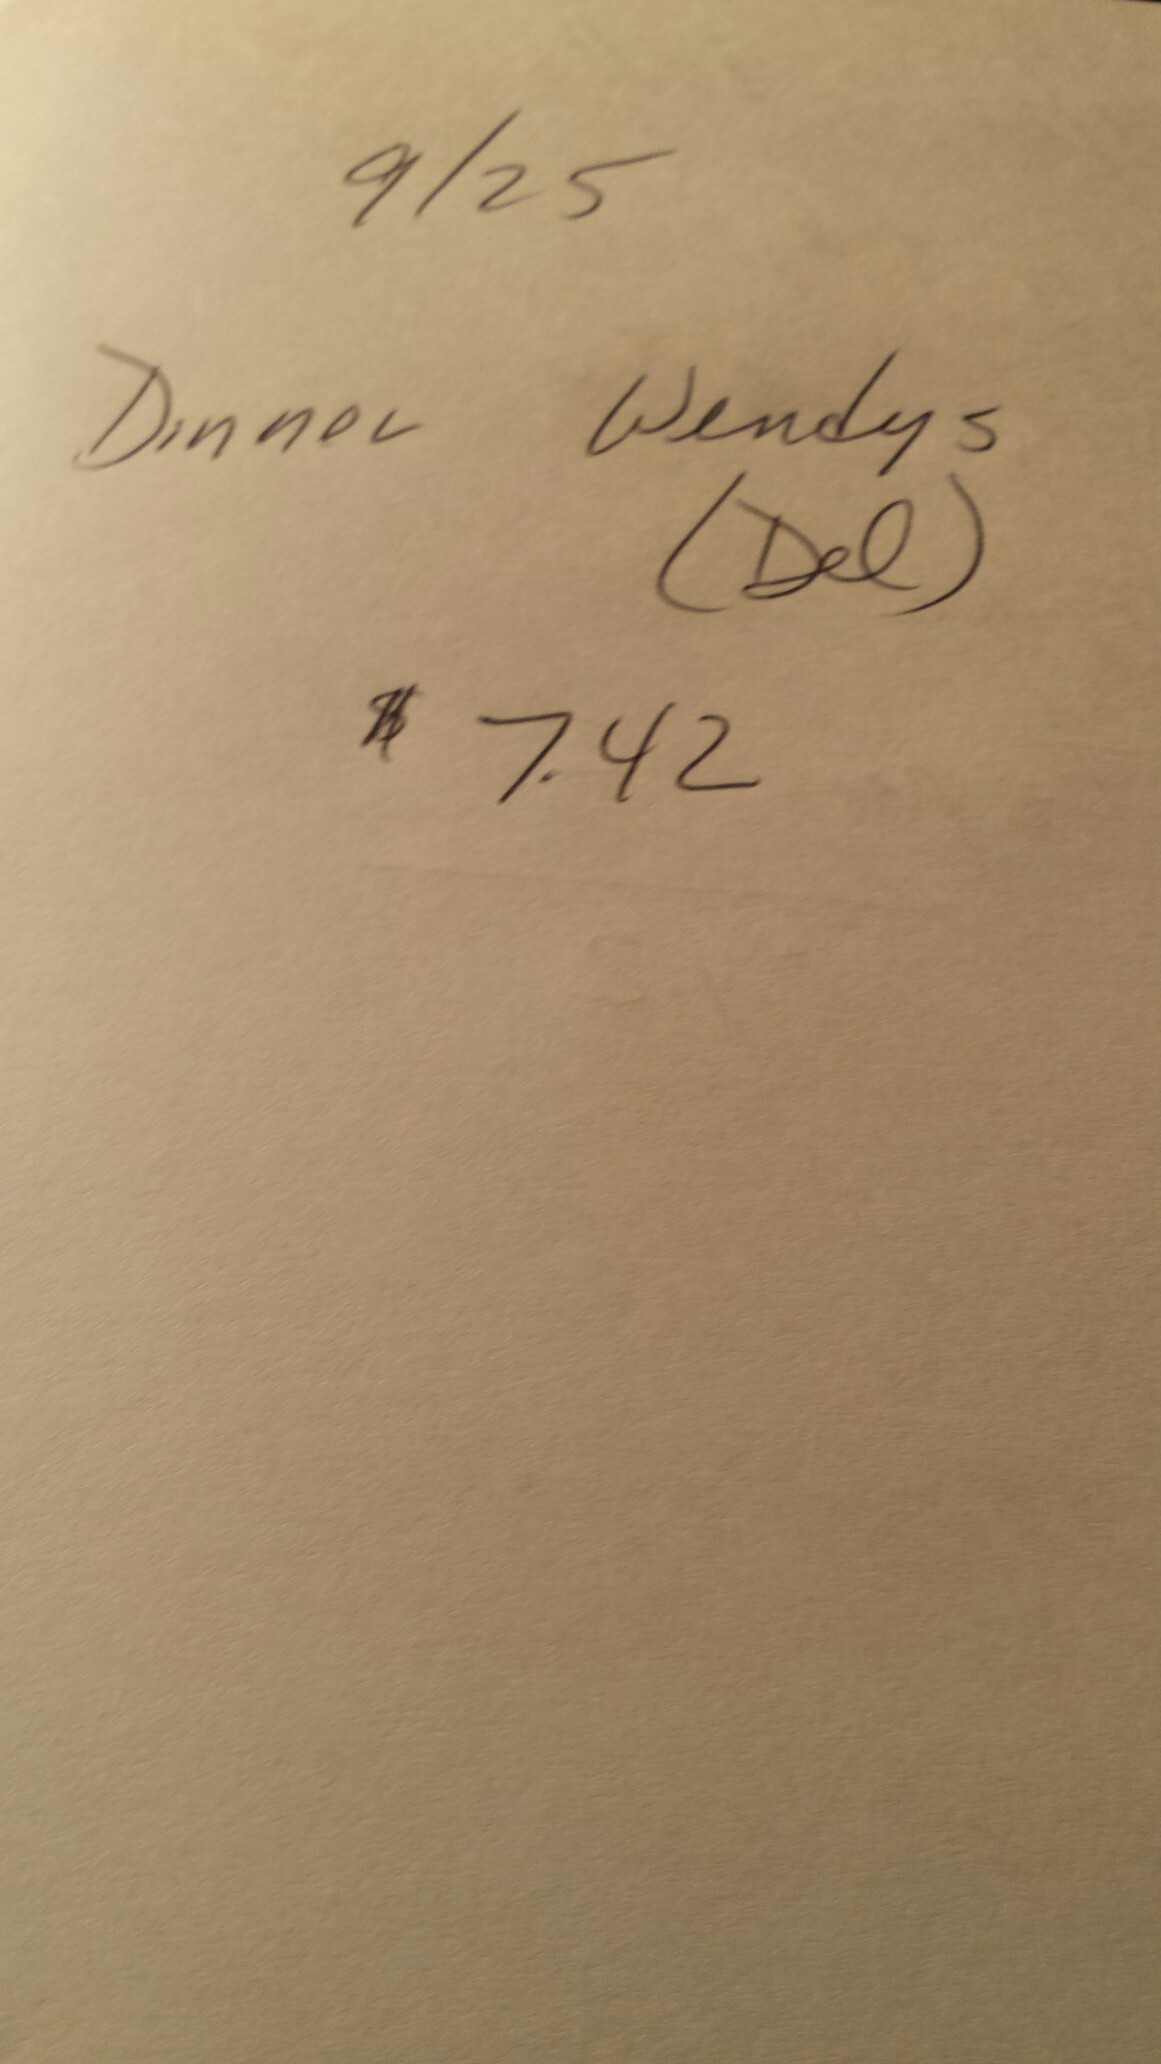 9/25
Dinner Wendys
(Del)
$ 7.42